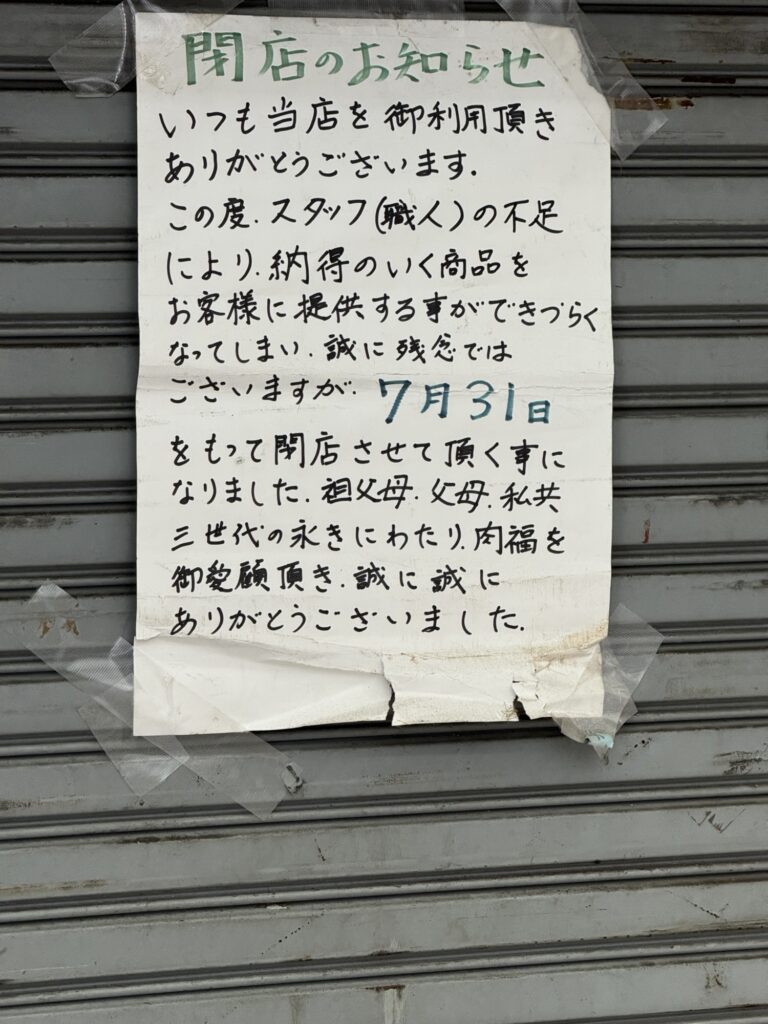 閉店のお知らせ
いつも当店を御利用頂き
ありがとうございます.
この度.スタッフ(職人)の不足
により.納得のいく商品を
お客様に提供する事ができづらく
なってしまい.誠に残念では
ございますが.7月31日
をもって閉店させて頂く事に
なりました.祖父母.父母.私共
三世代の永きにわたり.肉福を
御愛顧頂き.誠に誠に
ありがとうございました.